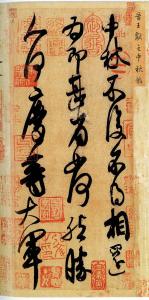 晋王献之中秋帖
中秋不復不得相還
為即甚省如何然勝
人何慶等大軍